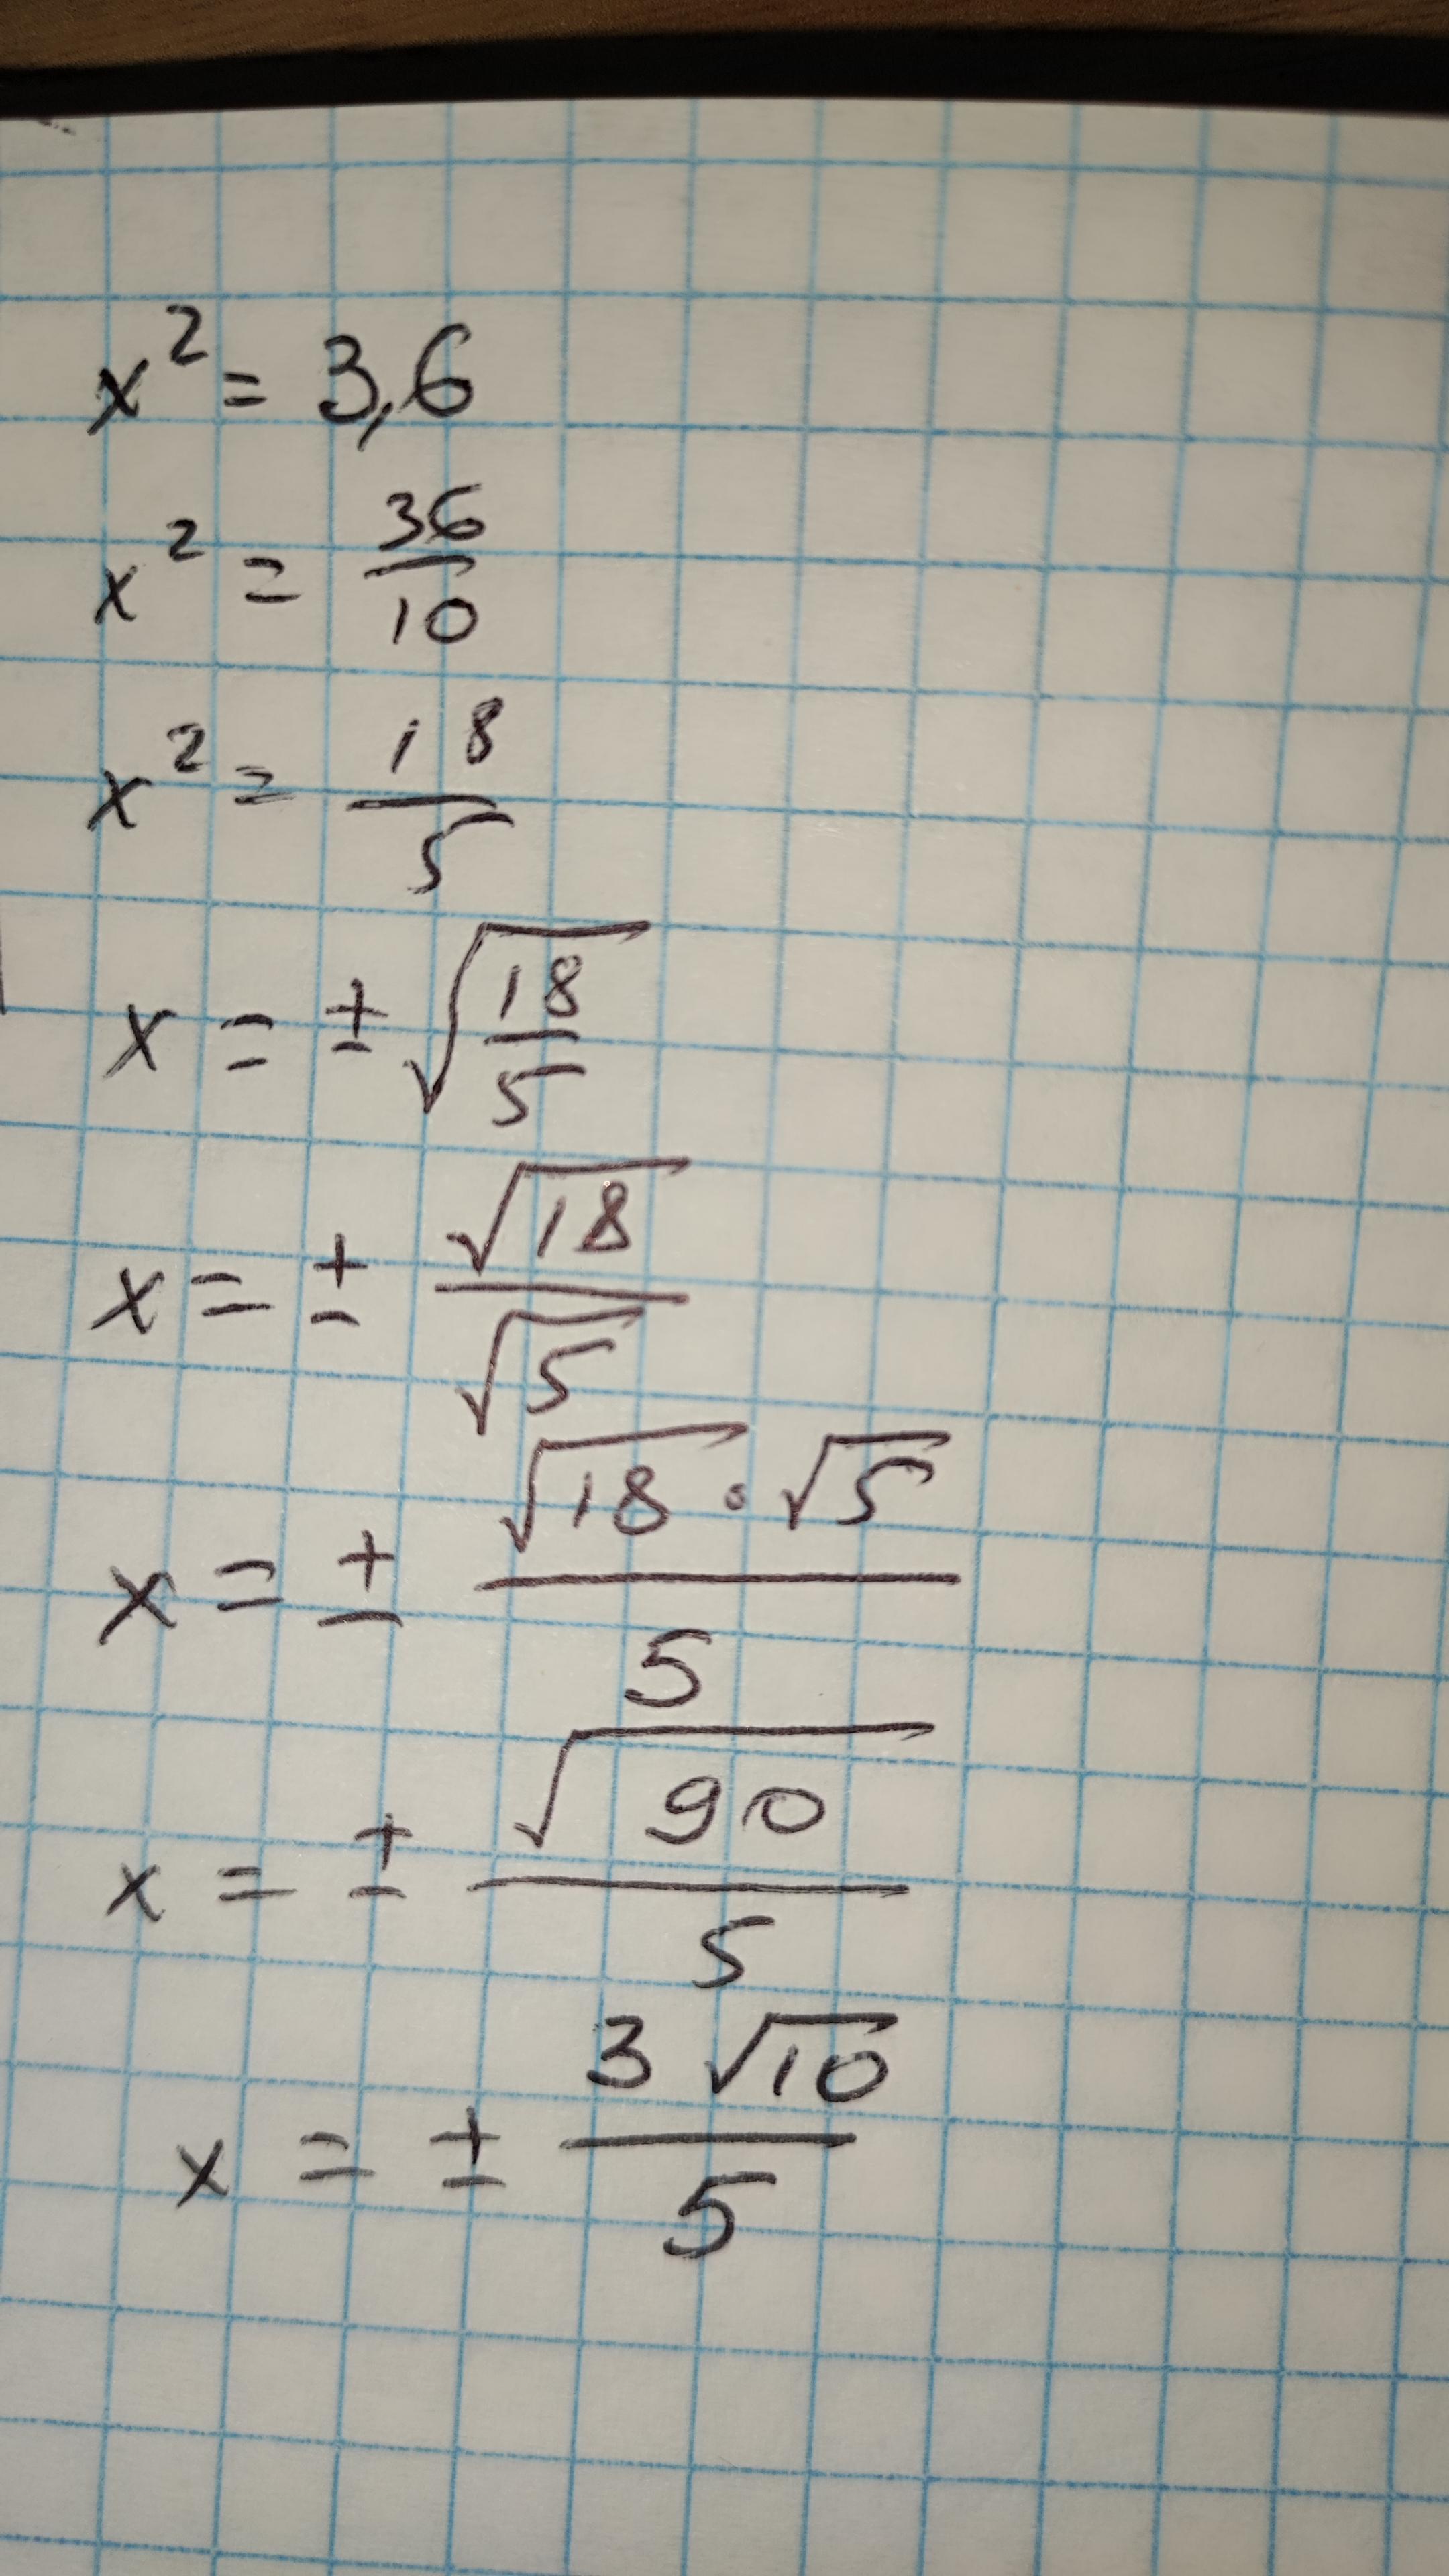 x² = 3,6
x² = 36/10
x² = 18/5
x = ± √(18/5)
x = ± √18/√5
x = ± (√18 · √5)/5
x = ± √90/5
x = ± 3√10/5